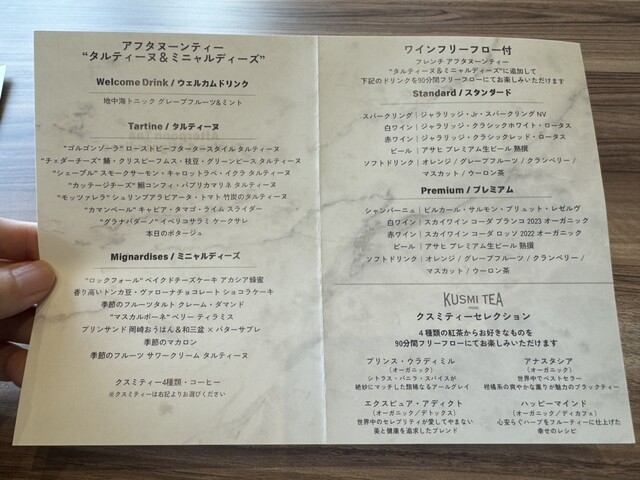 アフタヌーンティー
"タルティーヌ＆ミニャルディーズ"
Welcome Drink / ウェルカムドリンク
地中海トニック グレープフルーツ&ミント
Tartine / タルティーヌ
"ゴルゴンゾーラ" ローストビーフタータースタイル タルティーヌ
"チェダーチーズ" 鯖・クリスピーフムス・枝豆・グリーンピース タルティーヌ
"シェーブル" スモークサーモン・キャロットラペ・イクラ タルティーヌ
"カッテージチーズ" 鮪コンフィ・パプリカマリネ タルティーヌ
"モッツァレラ" シュリンプアラビアータ・トマト 竹炭のタルティーヌ
"カマンベール" キャビア・タマゴ・ライム スライダー
"グラナパダーノ" イベリコサラミ ケークサレ
本日のポタージュ
Mignardises / ミニャルディーズ
"ロックフォール" ベイクドチーズケーキ アカシア蜂蜜
香り高いトンカ豆・ヴァローナチョコレート ショコラケーキ
季節のフルーツタルト クレーム・ダマンド
"マスカルポーネ" ベリー ティラミス
プリンサンド 岡崎おうはん＆和三盆 × バターサブレ
季節のマカロン
季節のフルーツ サワークリーム タルティーヌ
クスミティー4種類・コーヒー
※クスミティーは右記よりお選びください
ワインフリーフロー付
フレンチ アフタヌーンティー
"タルティーヌ＆ミニャルディーズ"に追加して
下記のドリンクを90分間フリーフローにてお楽しみいただけます
Standard / スタンダード
スパークリング｜ジャラリッジ・Jr・スパークリング NV
白ワイン｜ジャラリッジ・クラシックホワイト・ロータス
赤ワイン｜ジャラリッジ・クラシックレッド・ロータス
ビール｜アサヒ プレミアム生ビール 熟撰
ソフトドリンク｜オレンジ / グレープフルーツ / クランベリー /
マスカット / ウーロン茶
Premium / プレミアム
シャンパーニュ｜ビルカール・サルモン・ブリュット・レゼルヴ
白ワイン｜スカイワイン コーダ ブランコ 2023 オーガニック
赤ワイン｜スカイワイン コーダ ロッソ 2022 オーガニック
ビール｜アサヒ プレミアム生ビール 熟撰
ソフトドリンク｜オレンジ / グレープフルーツ / クランベリー /
マスカット / ウーロン茶
KUSMI TEA
クスミティーセレクション
４種類の紅茶からお好きなものを
90分間フリーフローにてお楽しみいただけます
プリンス・ウラディミル
(オーガニック)
シトラス・バニラ・スパイスが
絶妙にマッチした類稀なるアールグレイ
アナスタシア
(オーガニック)
世界中でベストセラー
柑橘系の爽やかな薫りが魅力のブラックティー
エクスピュア・アディクト
(オーガニック/デトックス)
世界中のセレブリティが愛してやまない
美と健康を追求したブレンド
ハッピーマインド
(オーガニック/ディカフェ)
心安らぐハーブをフルーティーに仕上げた
幸せのレシピ